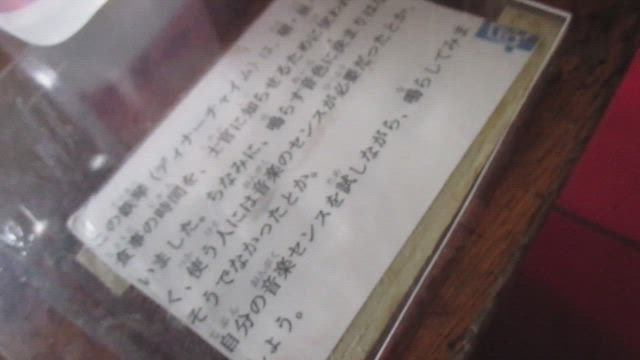 この鉄琴（ディナーチャイム）は、朝・昼
食事の時間を、士官に知らせるために使われ
いました。ちなみに、鳴らす音色に決まりは
く、使う人には音楽のセンスが必要だったとか、
そうでなかったとか。
自分の音楽センスを試しながら、鳴らしてみま
しょう。